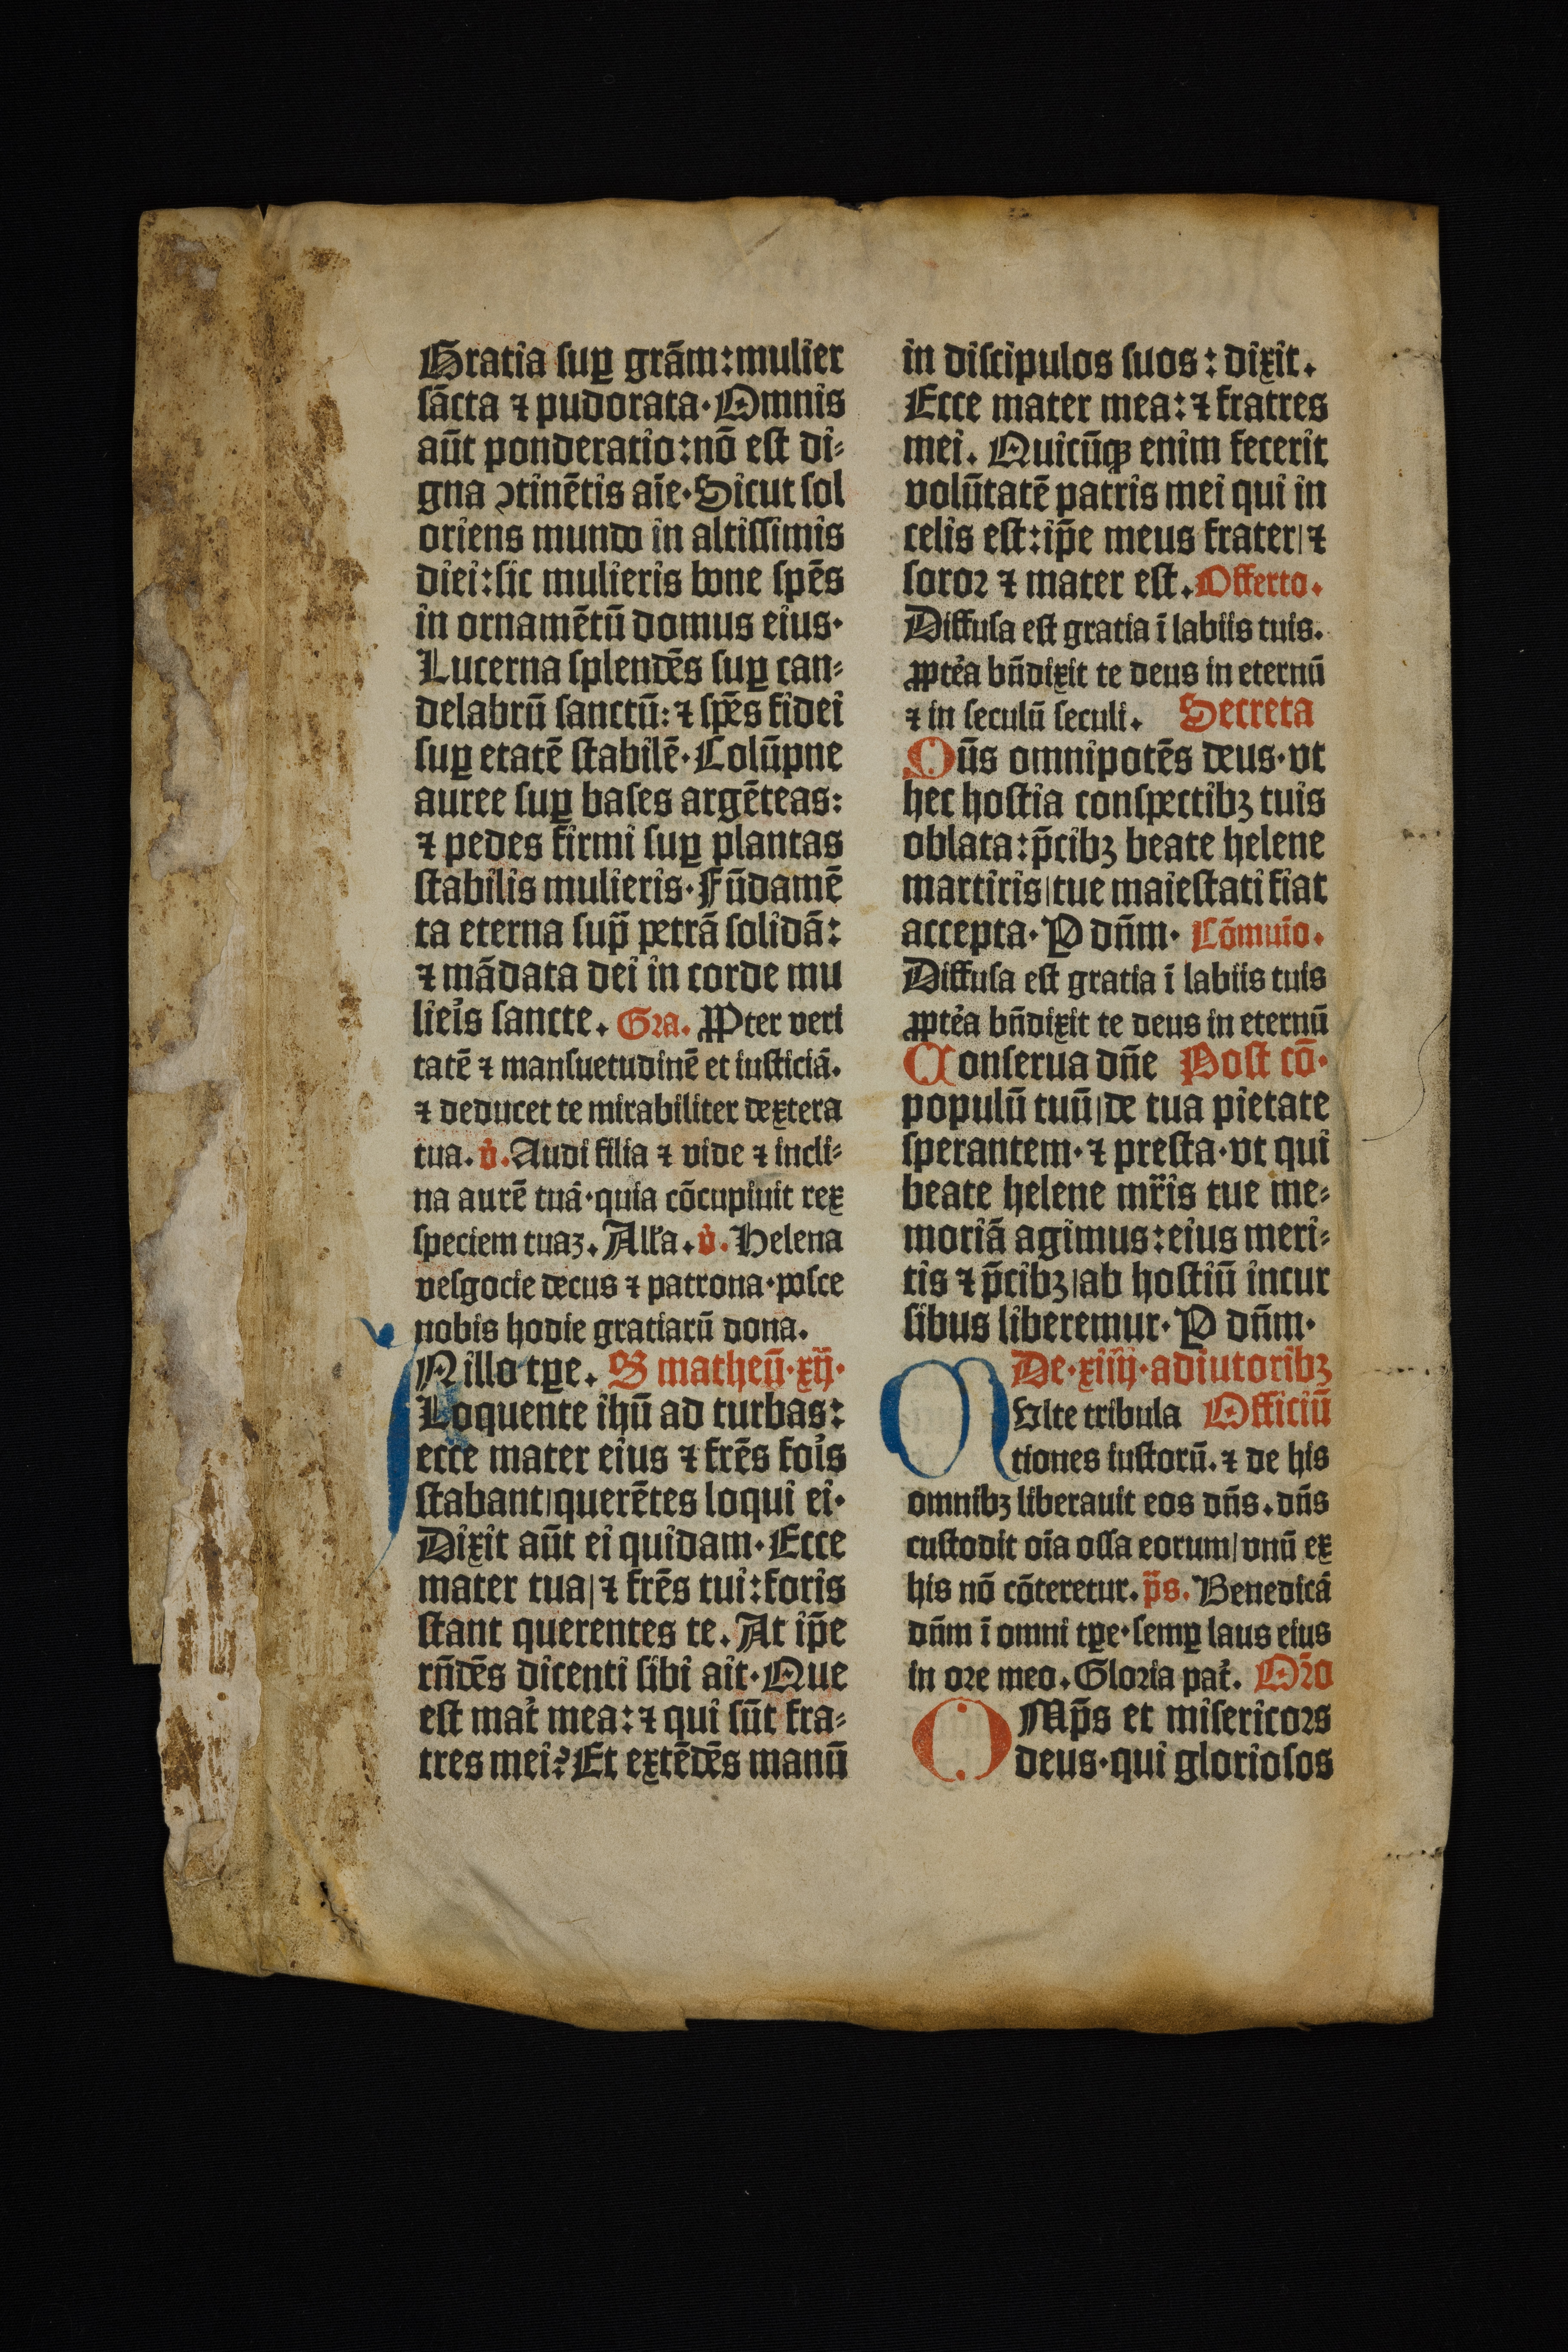 Gratia suꝑ grām: mulier
sācta ⁊ pudorata. Omnis
aūt ponderatio: nō est di⸗
gna ↄtinētis aīe. Sicut sol
oriens mundo in altissimis
diei: sic mulieris bone spēs
in ornamētū domus eius.
Lucerna splendēs suꝑ can⸗
delabrū sanctū: ⁊ spēs fidei
suꝑ etatē stabilē. Colūpne
auree suꝑ bases argēteas:
⁊ pedes firmi suꝑ plantas
stabilis mulieris. Fūdamē
ta eterna sup̄ petrā solidā:
⁊ mādata dei in corde mu
liel̓s sancte. Gra. Ꝓpter veri
tatē ⁊ mansuetudinē et iusticiā.
⁊ deducet te mirabiliter dextera
tua. v̓. Audi filia ⁊ vide ⁊ incli⸗
na aurē tuā. quia cōcupiuit rex
speciem tuaꝫ. Alľa. v̓. Helena
vesgocie decus ⁊ patrona. posce
nobis hodie gratiarū dona.
IN illo tꝑe. S matheū. xij.
Loquente ihū ad turbas:
ecce mater eius ⁊ frēs foi̓s
stabant/ querētes loqui ei.
Dixit aūt ei quidam. Ecce
mater tua/ ⁊ frēs tui: foris
stant querentes te. At ip̄e
rn̄dēs dicenti sibi ait. Que
est mat̓ mea: ⁊ qui sūt fra⸗
tres mei? Et extēdēs manū
in discipulos suos: dixit.
Ecce mater mea: ⁊ fratres
mei. Quicūqꝫ enim fecerit
volūtatē patris mei qui in
celis est: ip̄e meus frater/ ⁊
soror ⁊ mater est. Offerto.
Diffusa est gratia ī labiis tuis.
ꝓpte̓a bn̄dixit te deus in eternū
⁊ in seculū seculi. Secreta
Qūs omnipotēs deus. vt
hec hostia conspectibꝫ tuis
oblata: p̄cibꝫ beate helene
martiris/ tue maiestati fiat
accepta. P dn̄m. Cōmuīo.
Diffusa est gratia ī labiis tuis
ꝓpte̓a bn̄dixit te deus in eternū
Conserua dn̄e Post cō.
populū tuū/ de tua pietate
sperantem. ⁊ presta. vt qui
beate helene mr̄is tue me⸗
moriā agimus: eius meri⸗
tis ⁊ p̄cibꝫ/ ab hostiū incur
sibus liberemur. P dn̄m.
De. xiiij. adiutoribꝫ
MUlte tribula Officiū
tiones iustorū. ⁊ de his
omnibꝫ liberauit eos dn̄s. dn̄s
custodit oīa ossa eorum/ vnū ex
his nō cōteretur. p̄s. Benedicā
dn̄m ī omni tꝑe. semꝑ laus eius
in ore meo. Gloria pat̓. Or̄o
OMp̄s et misericors
deus. qui gloriosos